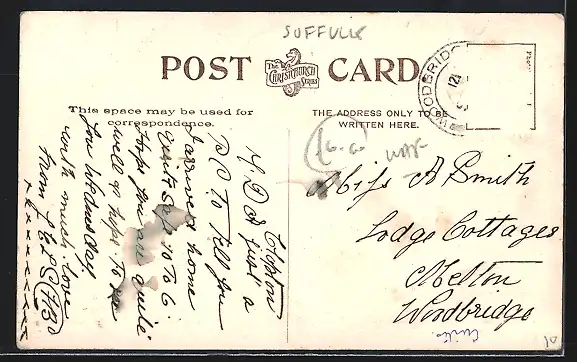 SUFFOLK
POST CARD
The
CHRISTCHURCH
SERIES
WOODBRIDGE
This space may be used for
correspondence.
THE ADDRESS ONLY TO BE
WRITTEN HERE.
Clopton
M D A just a
PC to tell you
I arrived home
quite 10 to 6
hope you are quite
well & hope to see
you Wednesday
with much love
from
x x x x x x x x
Miss A Smith
Lodge Cottages
Melton
Woodbridge